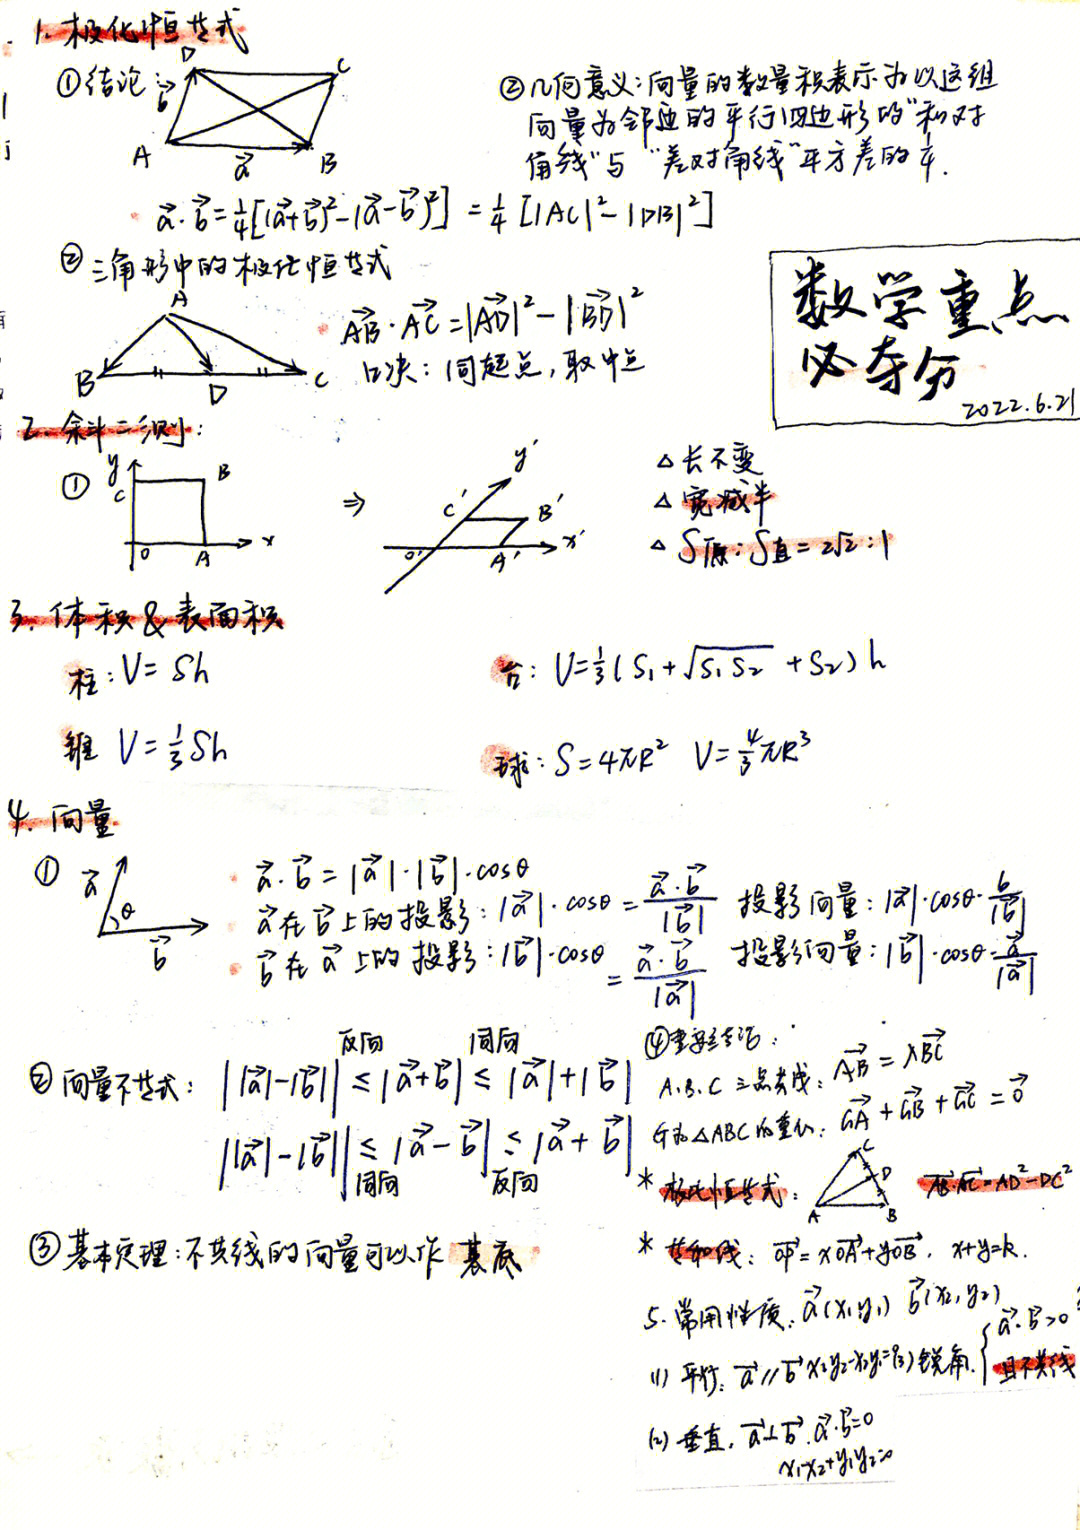 1. 极化恒等式
①结论:
D C
b⃗
A a⃗ B
②几何意义:向量的数量积表示为以这组
向量为邻边的平行四边形的"和对
角线"与"差对角线"平方差的1/4.
a⃗·b⃗=1/4[|a⃗+b⃗|²-|a⃗-b⃗|²]=1/4[|AC|²-|DB|²]
②三角形中的极化恒等式
A
B D C
AB⃗·AC⃗=|AD⃗|²-|BD⃗|²
口决:同起点,取中点
数学重点
必夺分
2022.6.21
2. 斜二测:
① y C B
O A x
⇒
y' C' B'
O' A' x'
△ 长不变
△ 宽减半
△ S原:S直=2√2:1
3. 体积&表面积
柱:V=Sh
台:V=1/3(S₁+√S₁S₂+S₂)h
锥 V=1/3Sh
球:S=4πR² V=4/3πR³
4. 向量
① a⃗ θ b⃗
a⃗·b⃗=|a⃗|·|b⃗|·cosθ
a⃗在b⃗上的投影:|a⃗|·cosθ=a⃗·b⃗/|b⃗| 投影向量:|a⃗|·cosθ·b/|b⃗|
b⃗在a⃗上的投影:|b⃗|·cosθ=a⃗·b⃗/|a⃗| 投影向量:|b⃗|·cosθ·a⃗/|a⃗|
反向 同向
②向量不等式:||a⃗|-|b⃗||≤|a⃗+b⃗|≤|a⃗|+|b⃗|
||a⃗|-|b⃗||≤|a⃗-b⃗|≤|a⃗+b⃗|
同向 反向
③基本定理:不共线的向量可以作 基底
④重要结论:
A.B.C三点共线:AB⃗=λBC⃗
G为△ABC的重心:GA⃗+GB⃗+GC⃗=0⃗
* 极化恒等式:
C D
A B
AB⃗·AC⃗=AD²-DC²
* 等和线:OP⃗=xOA⃗+yOB⃗. x+y=k.
5. 常用性质:a⃗(x₁y₁) b⃗(x₂,y₂)
(1) 平行:a⃗∥b⃗ x₁y₂-x₂y₁=0
(3)锐角.{a⃗·b⃗>0
且不共线
(2) 垂直.a⃗⊥b⃗.a⃗·b⃗=0
x₁x₂+y₁y₂=0